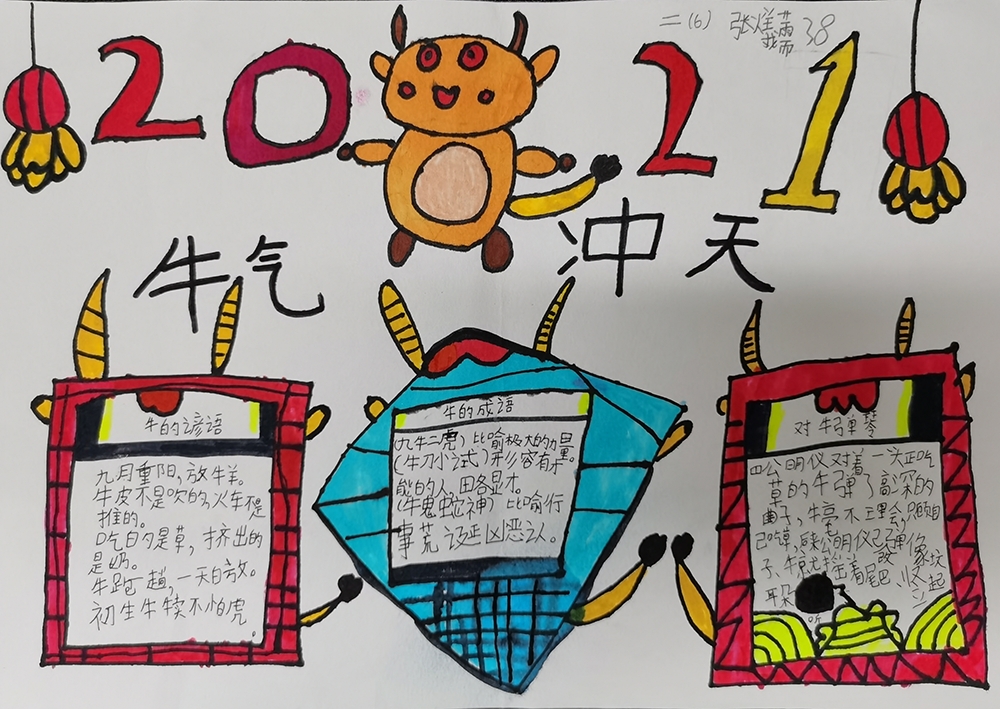 二(6) 38
2021
牛气冲天
牛的谚语
九月重阳,放牛羊。
牛皮不是吹的,火车不是
推的。
吃的是草,挤出的
是奶。
牛跑一趟,一天白放。
初生牛犊不怕虎。
牛的成语
(九牛二虎)比喻极大的力量。
(牛刀小试)形容有才
能的人,
(牛鬼蛇神)比喻行
事荒诞凶恶之人。
对牛弹琴
公明仪对着一头正吃
草的牛弹了高深的
曲子,牛毫不理会,只顾自
己吃草,
子,牛就摇着尾巴
耳朵
听